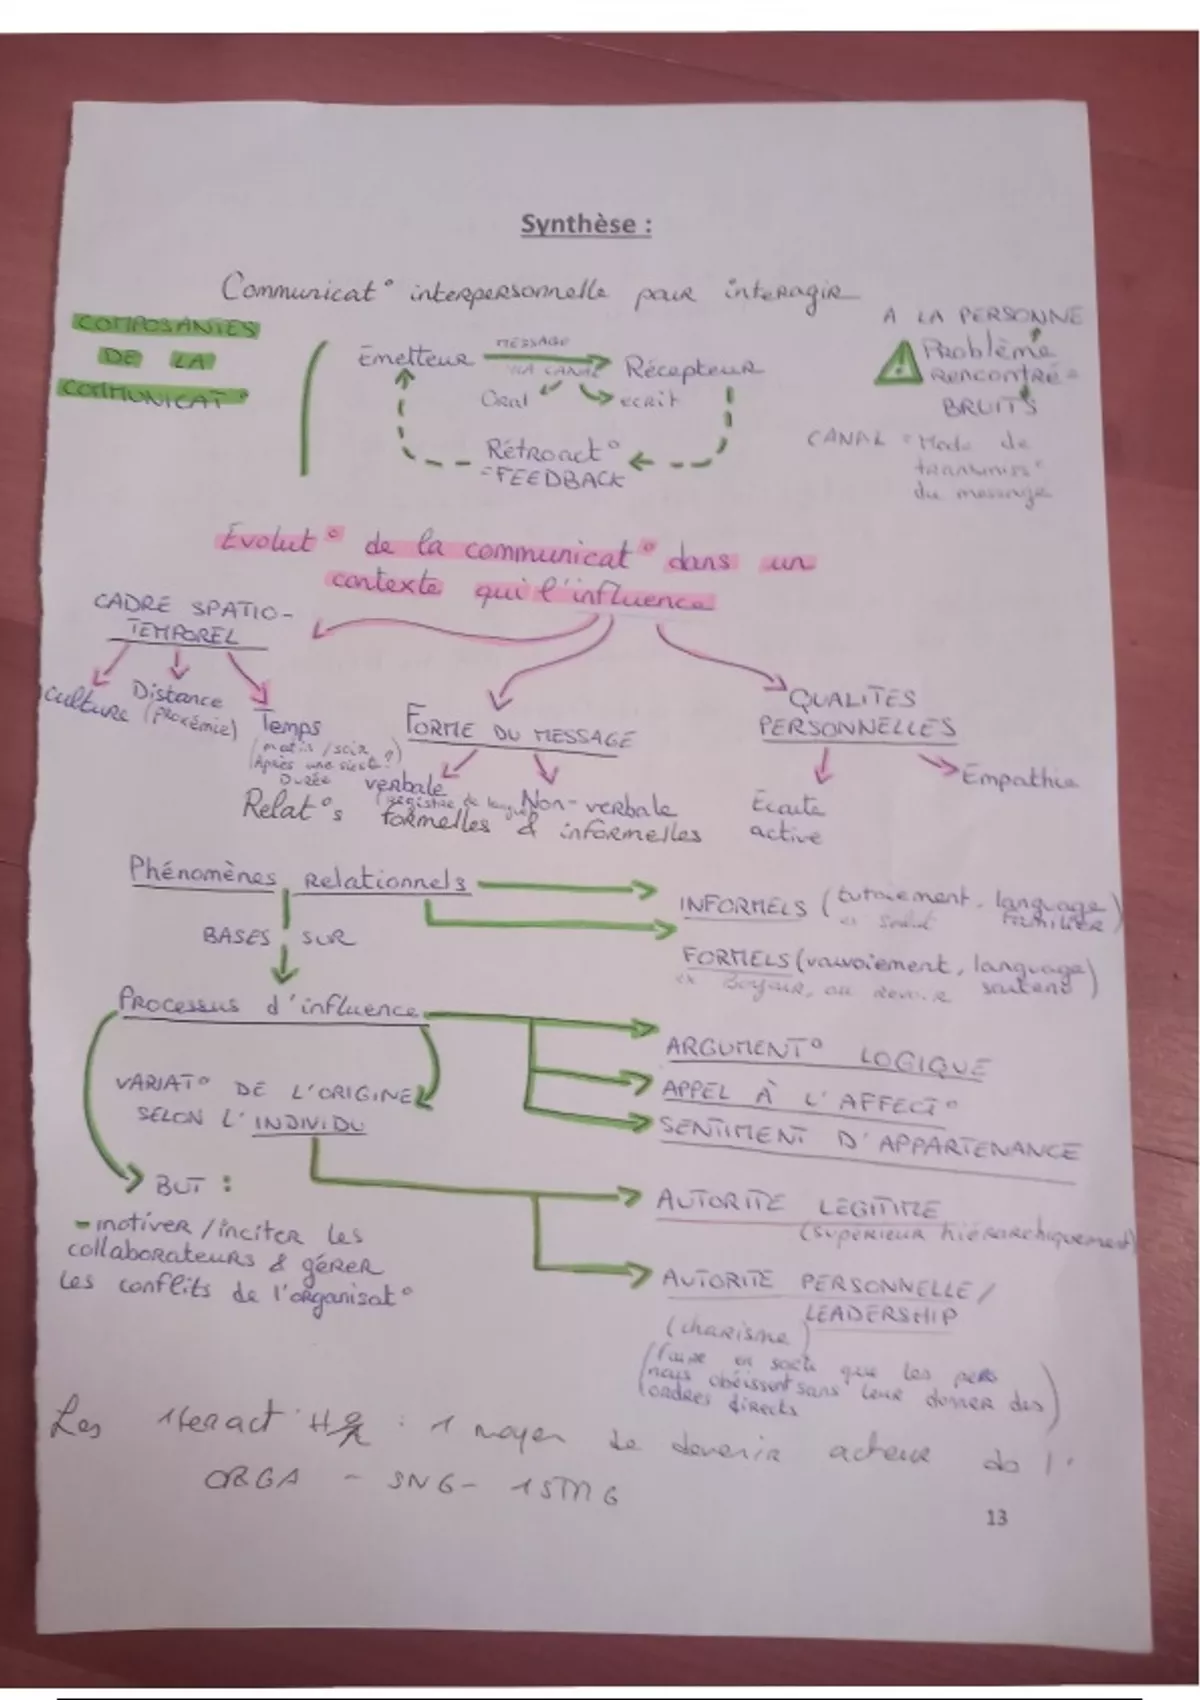 Synthèse :
Communicat° interpersonnelle pour interagir
COMPOSANTES
DE LA
COMMUNICAT°
Émetteur
MESSAGE
VIA CANAL
Récepteur
Oral
ecrit
Rétroact°
=FEEDBACK
A LA PERSONNE
Problème
Rencontré =
BRUITS
CANAL = Mode de
transmiss°
du message
Evolut° de la communicat° dans un
contexte qui l'influence
CADRE SPATIO-
TEMPOREL
culture
Distance
(Proxémie)
Temps
(matin / soir
Après une sieste ?)
Durée
FORME DU MESSAGE
verbale
(Registre de langue)
Non-verbale
QUALITES
PERSONNELLES
Ecoute
active
Empathie
Relat°s formelles & informelles
Phénomènes relationnels
INFORMELS (tutoiement, language
familier)
ex salut
FORMELS (vouvoiement, language)
soutenu
ex Bonjour, au revoir
BASES SUR
Processus d'influence
ARGUMENT° LOGIQUE
APPEL À L'AFFECT°
SENTIMENT D'APPARTENANCE
VARIAT° DE L'ORIGINE
SELON L'INDIVIDU
AUTORITE LEGITIME
(supérieur hiérarchiquement)
AUTORITE PERSONNELLE /
LEADERSHIP
(charisme)
(faire en sorte que les pers
nous obéissent sans leur donner des
ordres directs)
BUT :
- motiver / inciter les
collaborateurs & gérer
les conflits de l'organisat°
Les : 1 moyen de devenir acteur de l'
ORGA - SNG - 1STMG
13